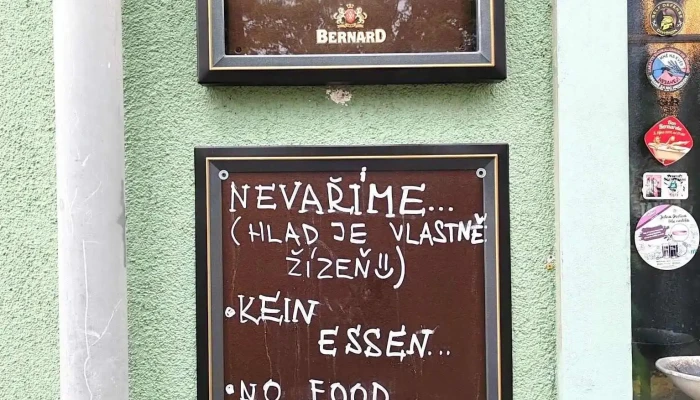 BERNARD
NEVAŘÍME...
(HLAD JE VLASTNĚ
ŽÍZEŇ)
•KEIN
ESSEN...
•NO FOOD